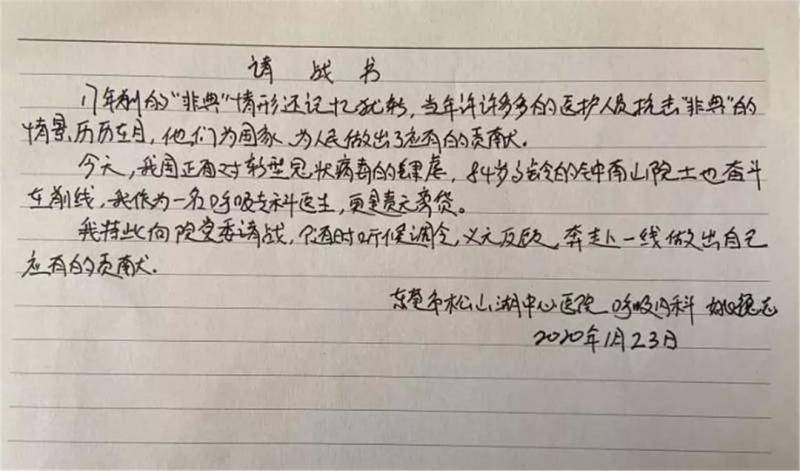 请战书
17年前的“非典”情形还记忆犹新，当年许许多多的医护人员抗击“非典”的
情景历历在目，他们为国家、为人民做出了应有的贡献。
今天，我国正面对新型冠状病毒的肆虐，84岁高龄的钟南山院士也奋斗
在前线，我作为一名呼吸专科医生，更是责无旁贷。
我特此向院党委请战，随时听候调令，义无反顾，奔赴一线做出自己
应有的贡献。
东莞市松山湖中心医院 呼吸内科 姚德志
2020年1月23日